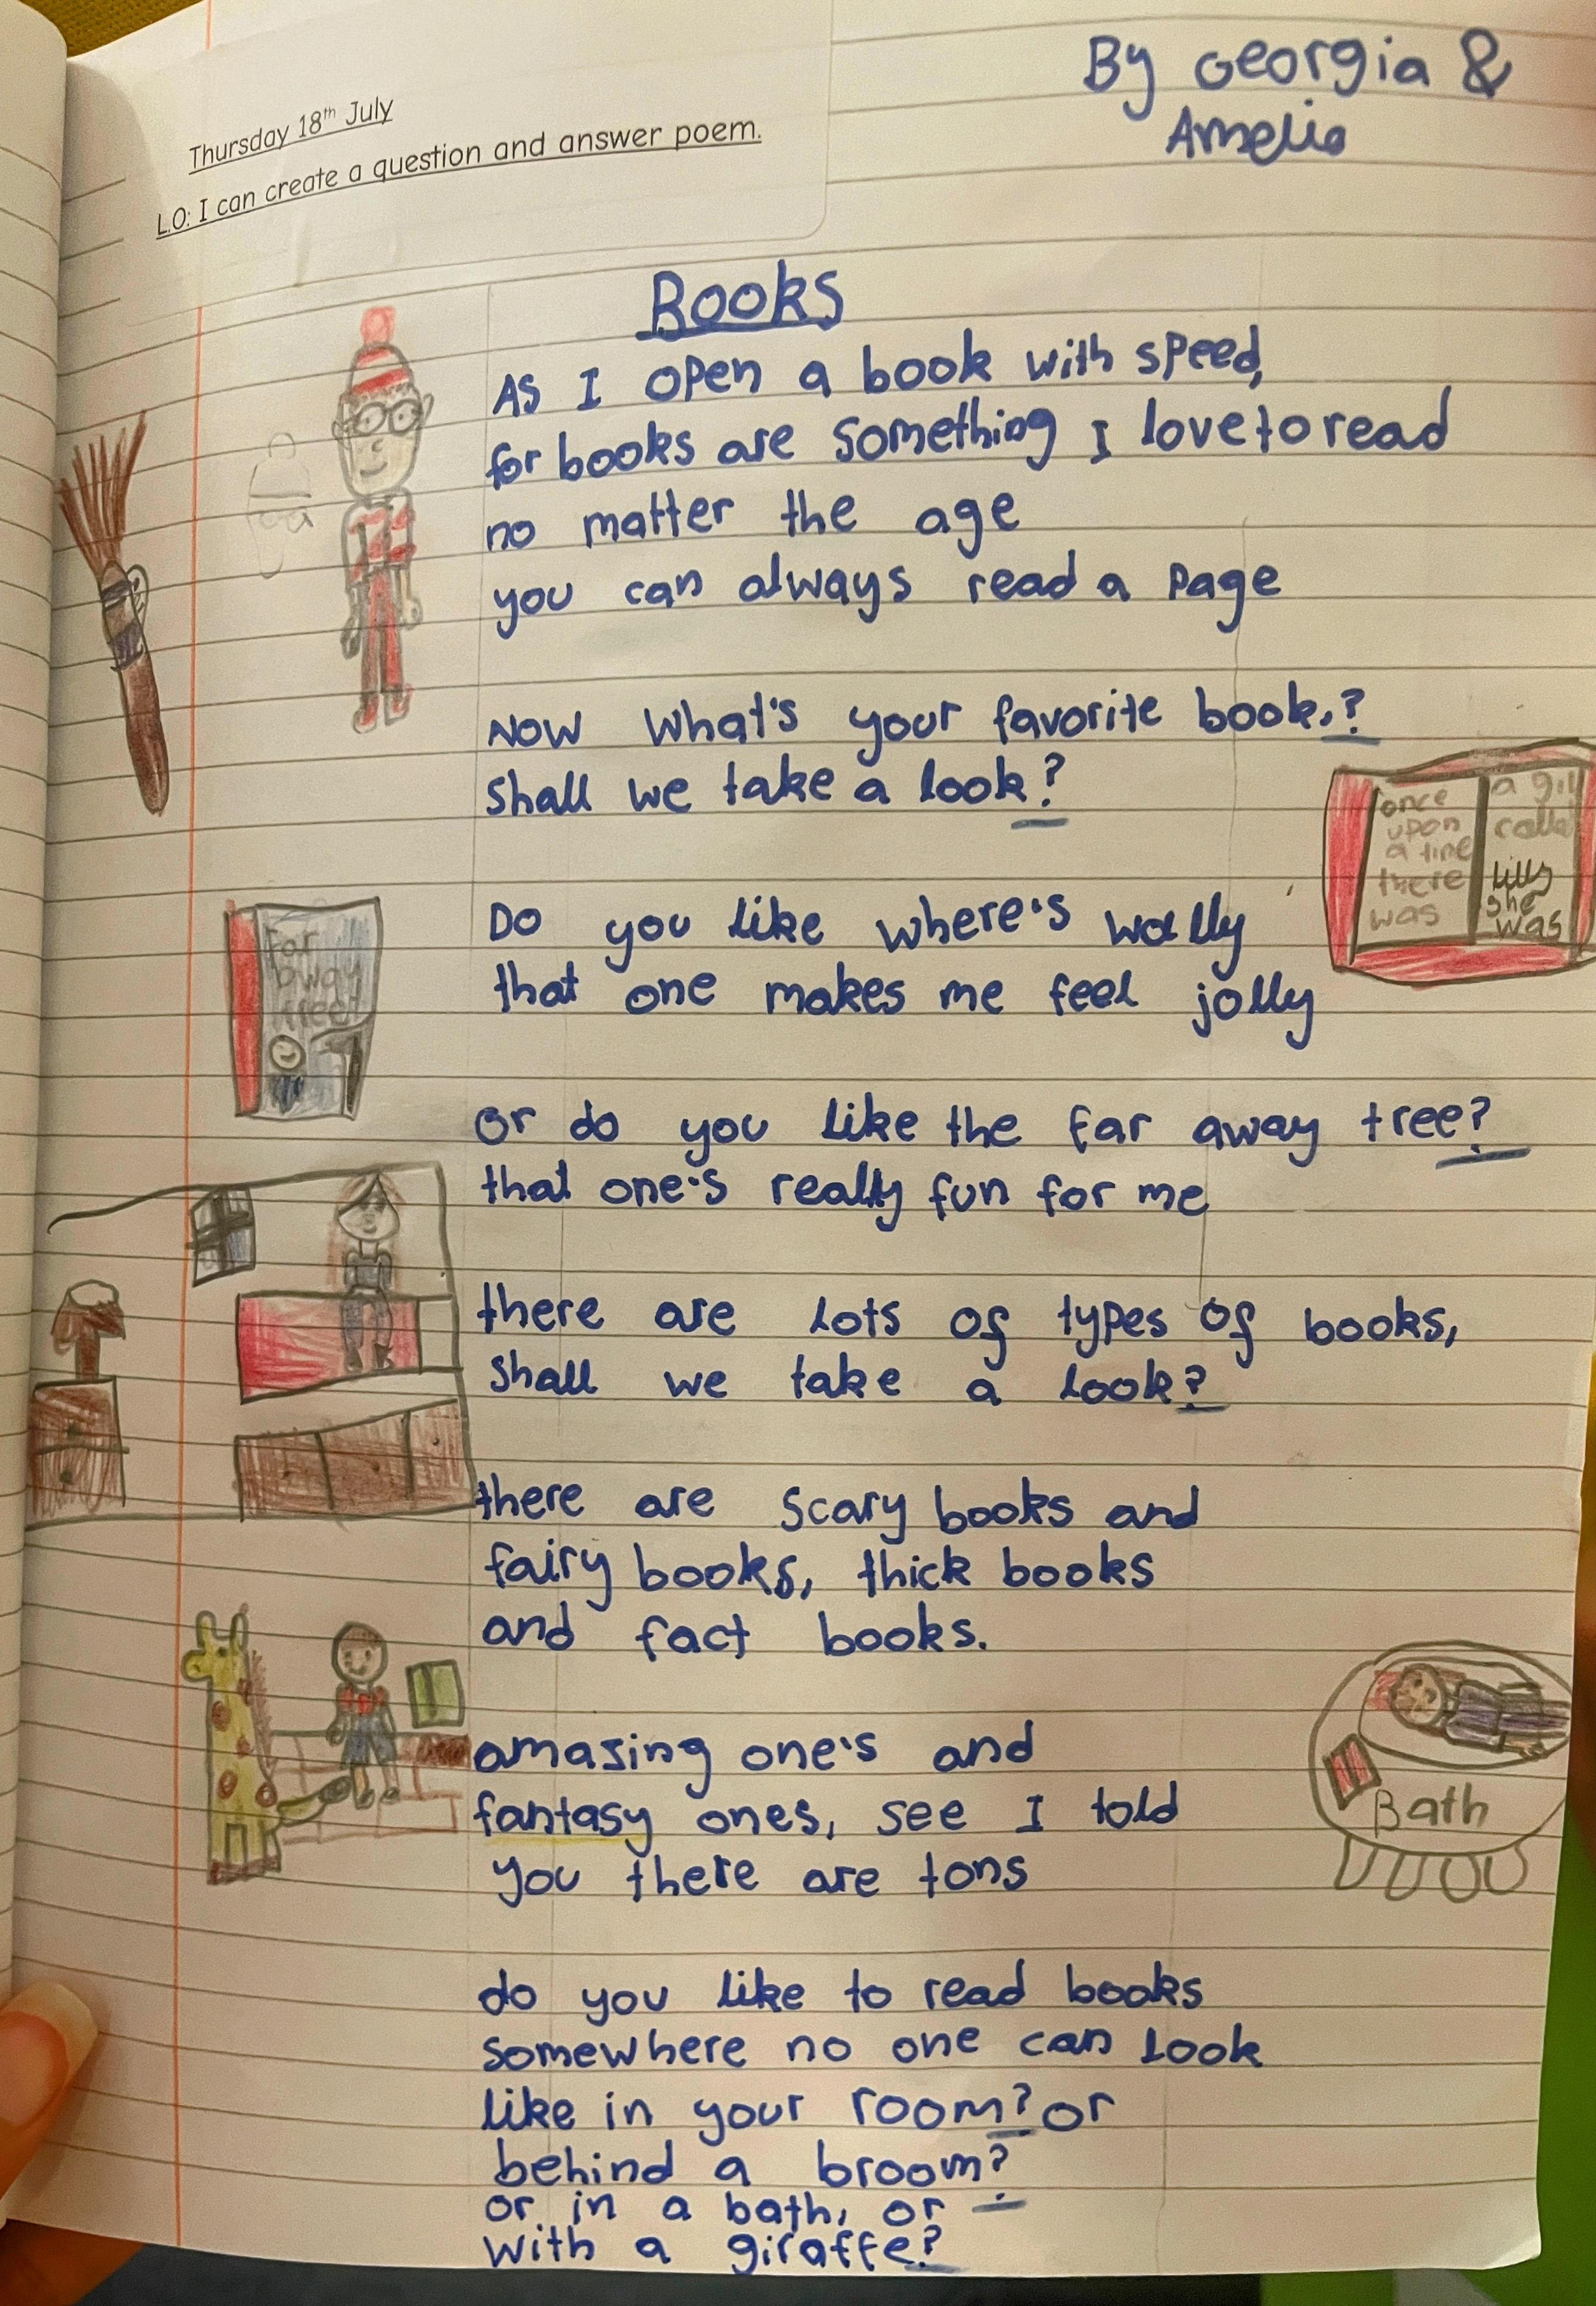 Thursday 18th July
L.O: I can create a question and answer poem.
By Georgia &
Amelia
Books
As I open a book with speed,
for books are something I love to read
no matter the age
you can always read a page
Now what's your favorite book,?
shall we take a look?
once
upon
a time
there
was
a girl
called
Lilly
she
was
Do you like where's wally
that one makes me feel jolly
Far
away
tree
or do you like the far away tree?
that one's really fun for me
there are lots of types of books,
shall we take a look?
there are scary books and
fairy books, thick books
and fact books.
amazing one's and
fantasy ones, see I told
you there are tons
Bath
do you like to read books
somewhere no one can look
like in your room? or
behind a broom?
or in a bath, or
with a giraffe?